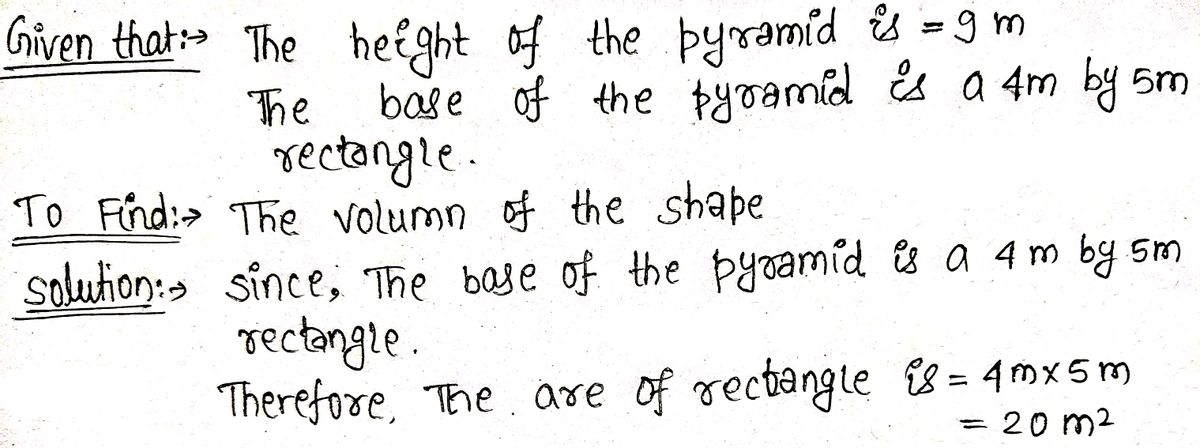 Given that:→ The height of the pyramid is = 9 m
The base of the pyramid is a 4m by 5m
rectangle.
To Find:→ The volumn of the shape
solution:→ since, The base of the pyramid is a 4 m by 5m
rectangle.
Therefore, The are of rectangle is = 4m×5m
= 20 m²